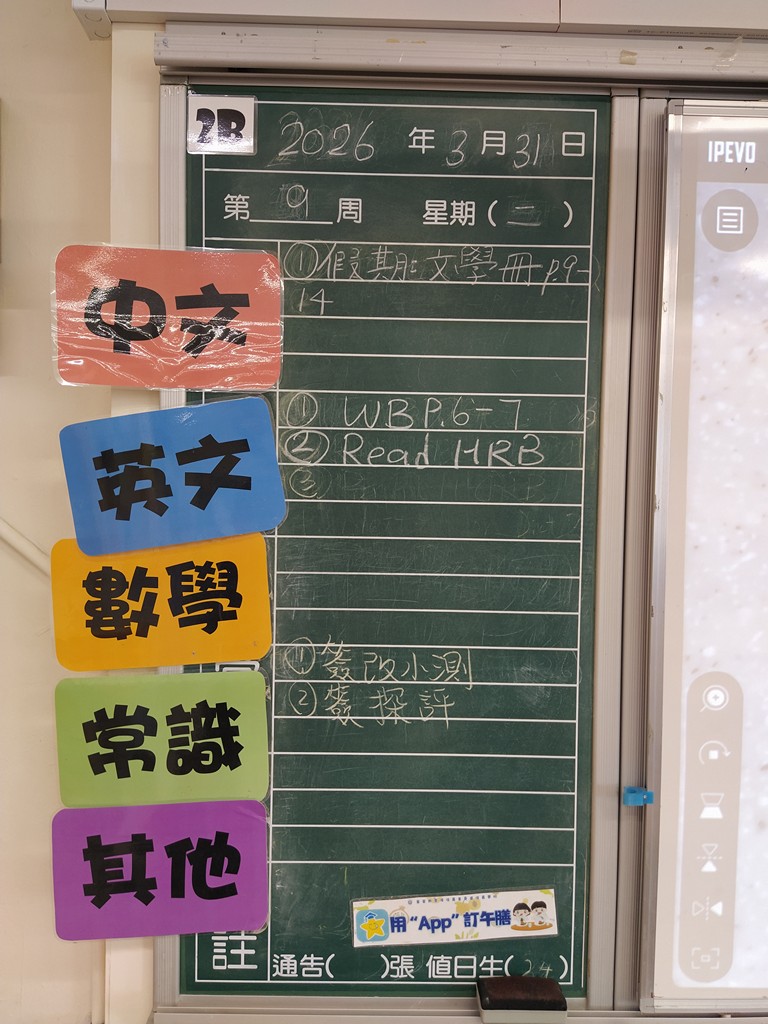 2B
2026 年 3 月 31 日
第 9 周 星期 ( 二 )
中文
① 假期文學冊 p.9-
14
英文
① WB P.6-7
② Read HRB
③
數學
常識
① 簽改小測
② 簽探評
其他
用 “App” 訂午膳
註
通告( )張 值日生( 24 )
IPEVO